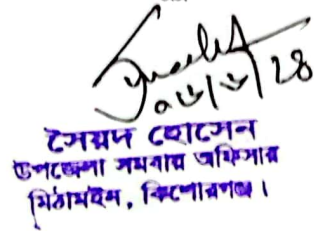 সৈয়দ হোসেন
উপজেলা সমবায় অফিসার
মিঠামইন, কিশোরগঞ্জ।